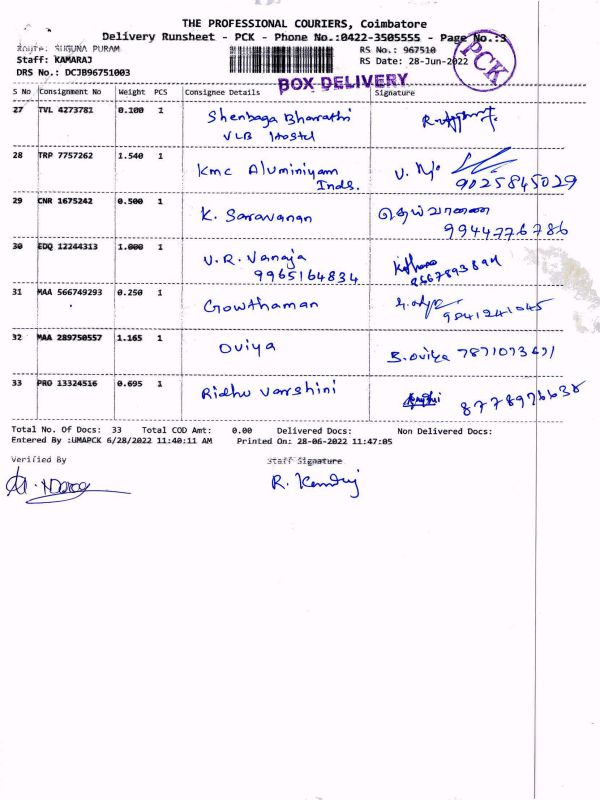 THE PROFESSIONAL COURIERS, Coimbatore
Delivery Runsheet - PCK - Phone No.:0422-3505555 - Page No.:3
Route: SUGUNA PURAM RS No.: 967510
Staff: KAMARAJ RS Date: 28-Jun-2022
DRS No.: DCJB96751003
PCK
BOX DELIVERY
S No Consignment No Weight PCS Consignee Details Signature
27 TVL 4273781 0.100 1 Shenbaga Bharathi
VLB Hostel
28 TRP 7757262 1.540 1 Kmc Aluminiyam
Inds. 9025845029
29 CNR 1675242 0.500 1 K. Saravanan
9944776786
30 EDQ 12244313 1.000 1 V.R. Vanaja
9965164834
31 MAA 566749293 0.250 1 Gowthaman
9841241045
32 MAA 289750557 1.165 1 Oviya B.oviya
33 PRO 13324516 0.695 1 Ridhu Varshini
Total No. Of Docs: 33 Total COD Amt: 0.00 Delivered Docs: Non Delivered Docs:
Entered By :UMAPCK 6/28/2022 11:40:11 AM Printed On: 28-06-2022 11:47:05
Verified By Staff Signature